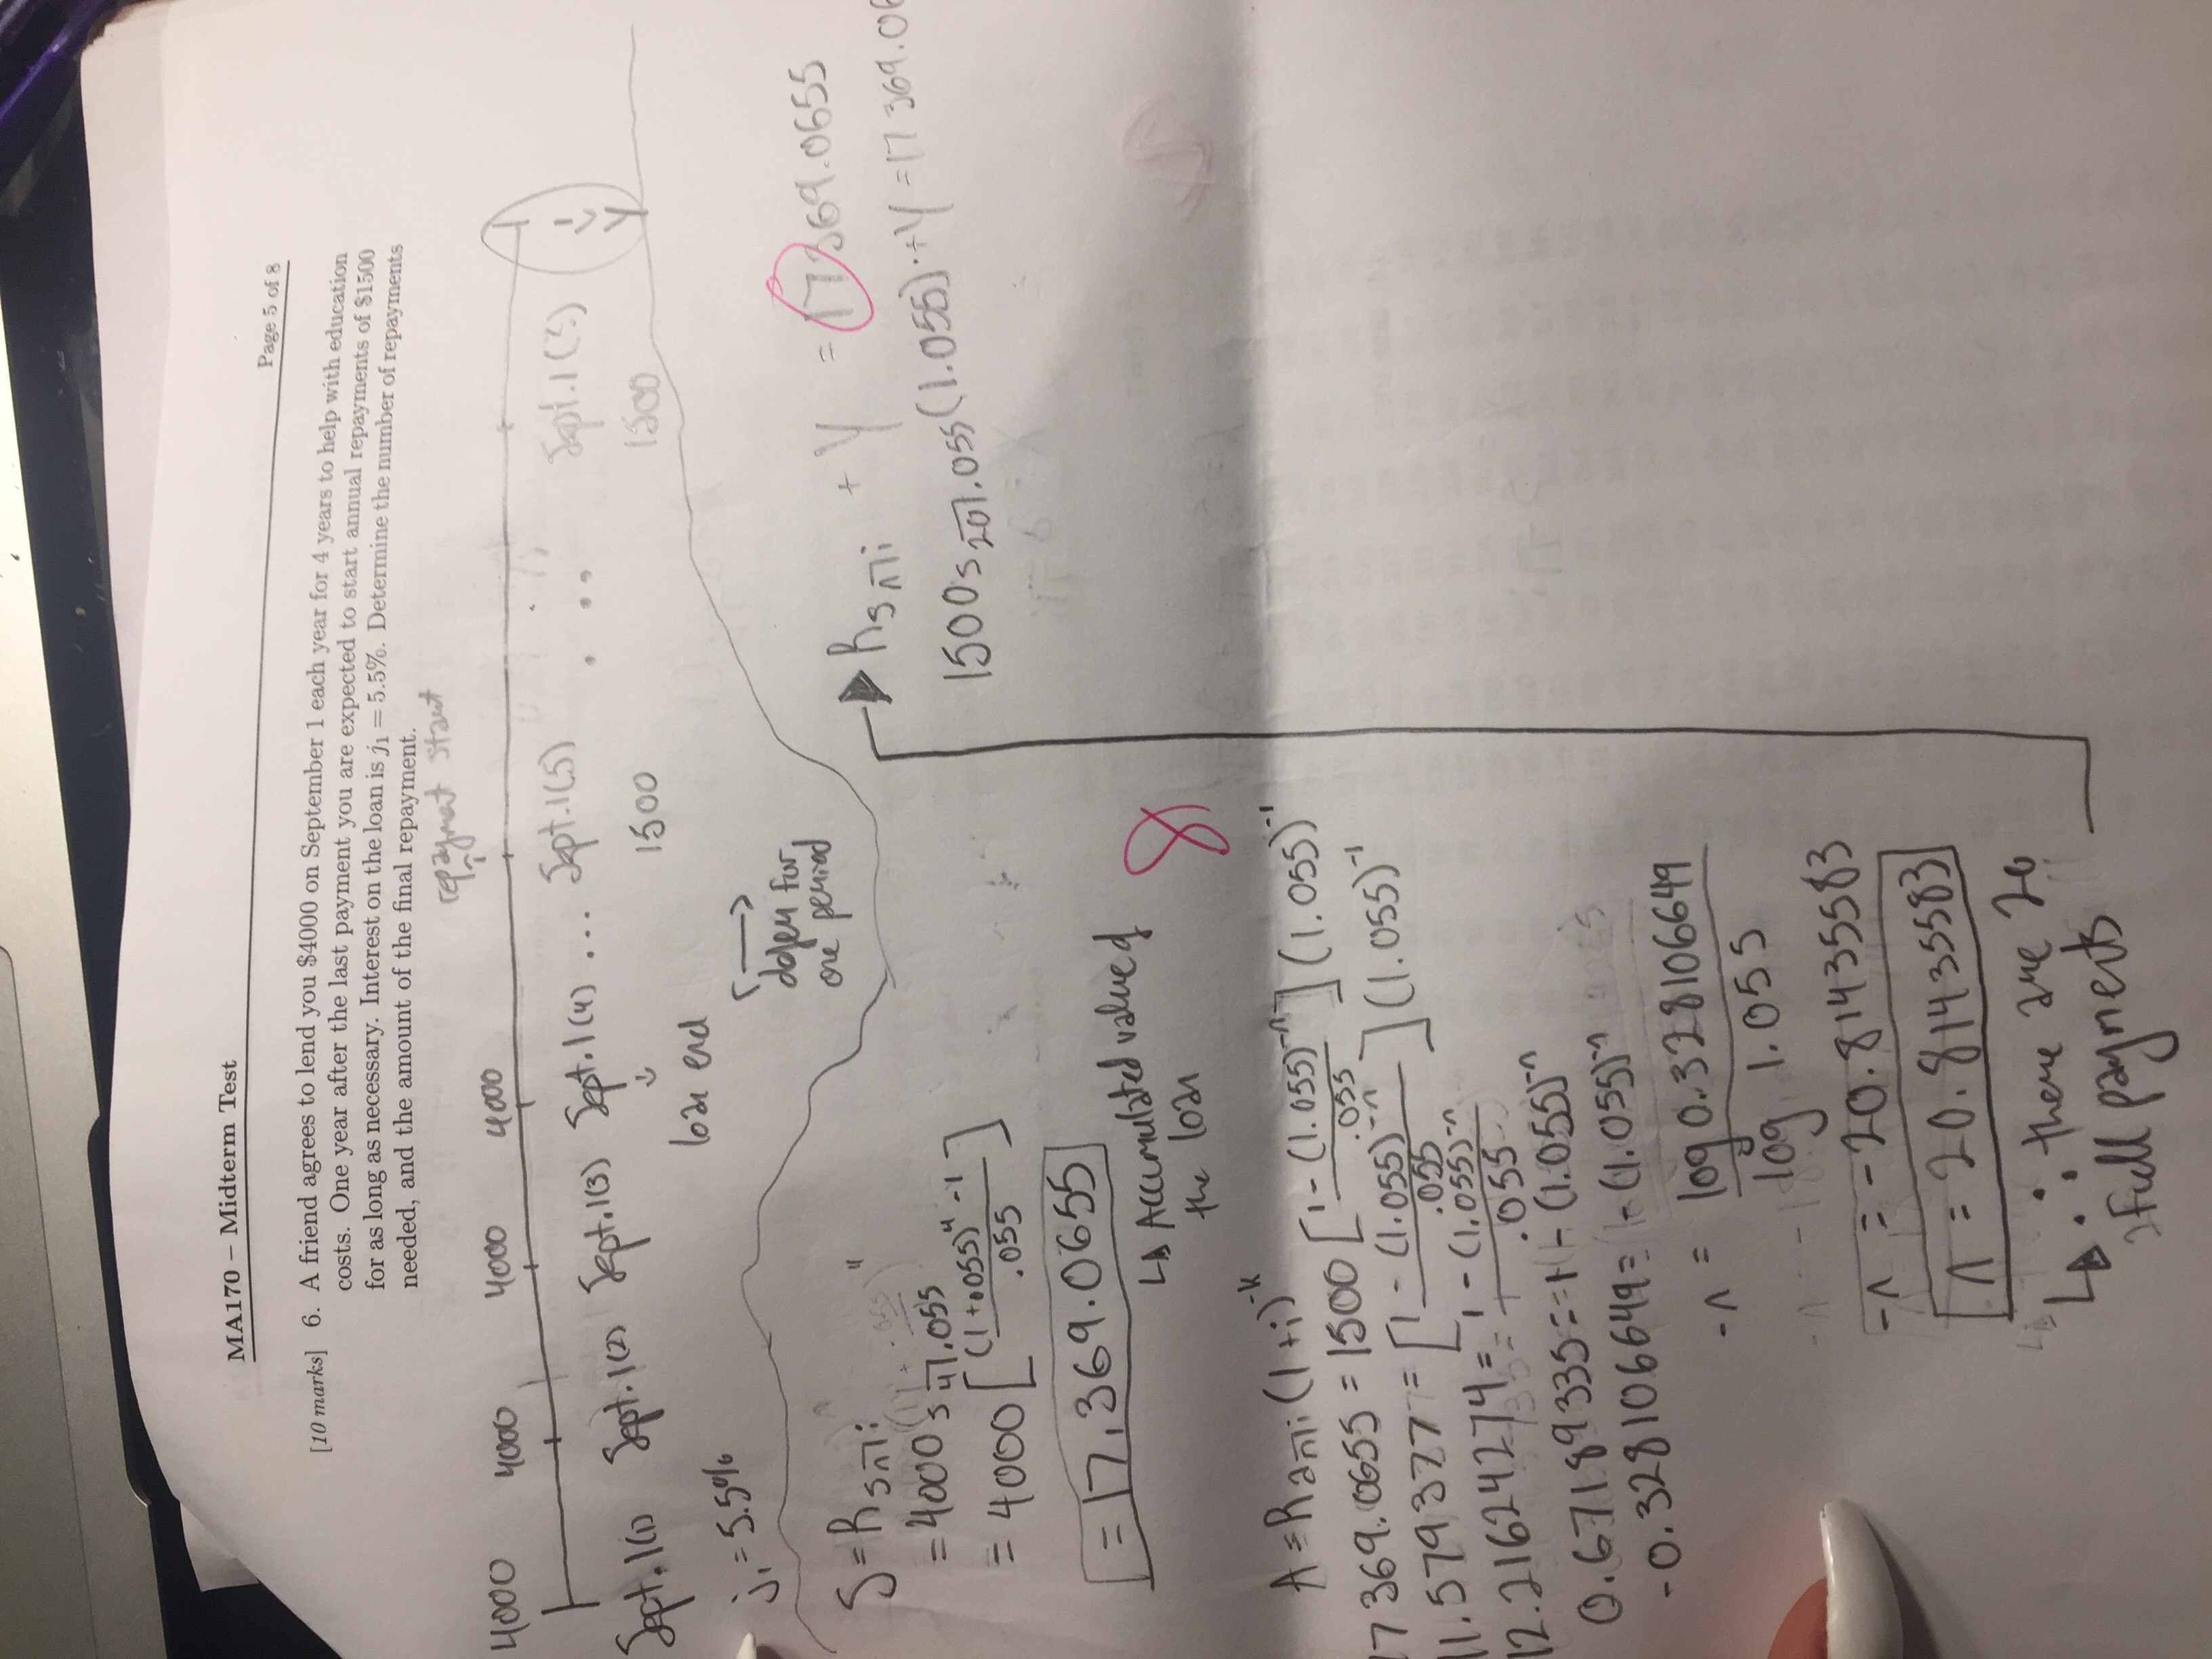 MA170 – Midterm Test
Page 5 of 8
[10 marks] 6. A friend agrees to lend you $4000 on September 1 each year for 4 years to help with education
costs. One year after the last payment you are expected to start annual repayments of $1500
for as long as necessary. Interest on the loan is j₁ = 5.5%. Determine the number of repayments
needed, and the amount of the final repayment.
repayment start
4000 4000 4000 4000
Sept.1(1) Sept.1(2) Sept.1(3) Sept.1(4) ... Sept.1(5) ... Sept.1(?)
loan end
1500 1500 Y
j₁ = 5.5%
defer for
one period
S = R s n̅|i
= 4000 s 4̅|.055
= 4000 [ (1+.055)⁴ - 1 / .055 ]
= 17,369.0655
↳ Accumulated value of
the loan
8
A = R a n̅|i (1+i)⁻ᵏ
17369.0655 = 1500 [ 1 - (1.055)⁻ⁿ / .055 ] (1.055)⁻¹
11.579377 = [ 1 - (1.055)⁻ⁿ / .055 ] (1.055)⁻¹
12.21624274 = 1 - (1.055)⁻ⁿ / .055
0.67189335 = 1 - (1.055)⁻ⁿ
-0.328106649 = - (1.055)⁻ⁿ
-n = log 0.328106649 / log 1.055
-n = -20.81435583
n = 20.81435583
↳ ∴ there are 20
full payments
R s n̅|i + Y = 17369.0655
1500 s 20̅|.055 (1.055) + Y = 17369.06